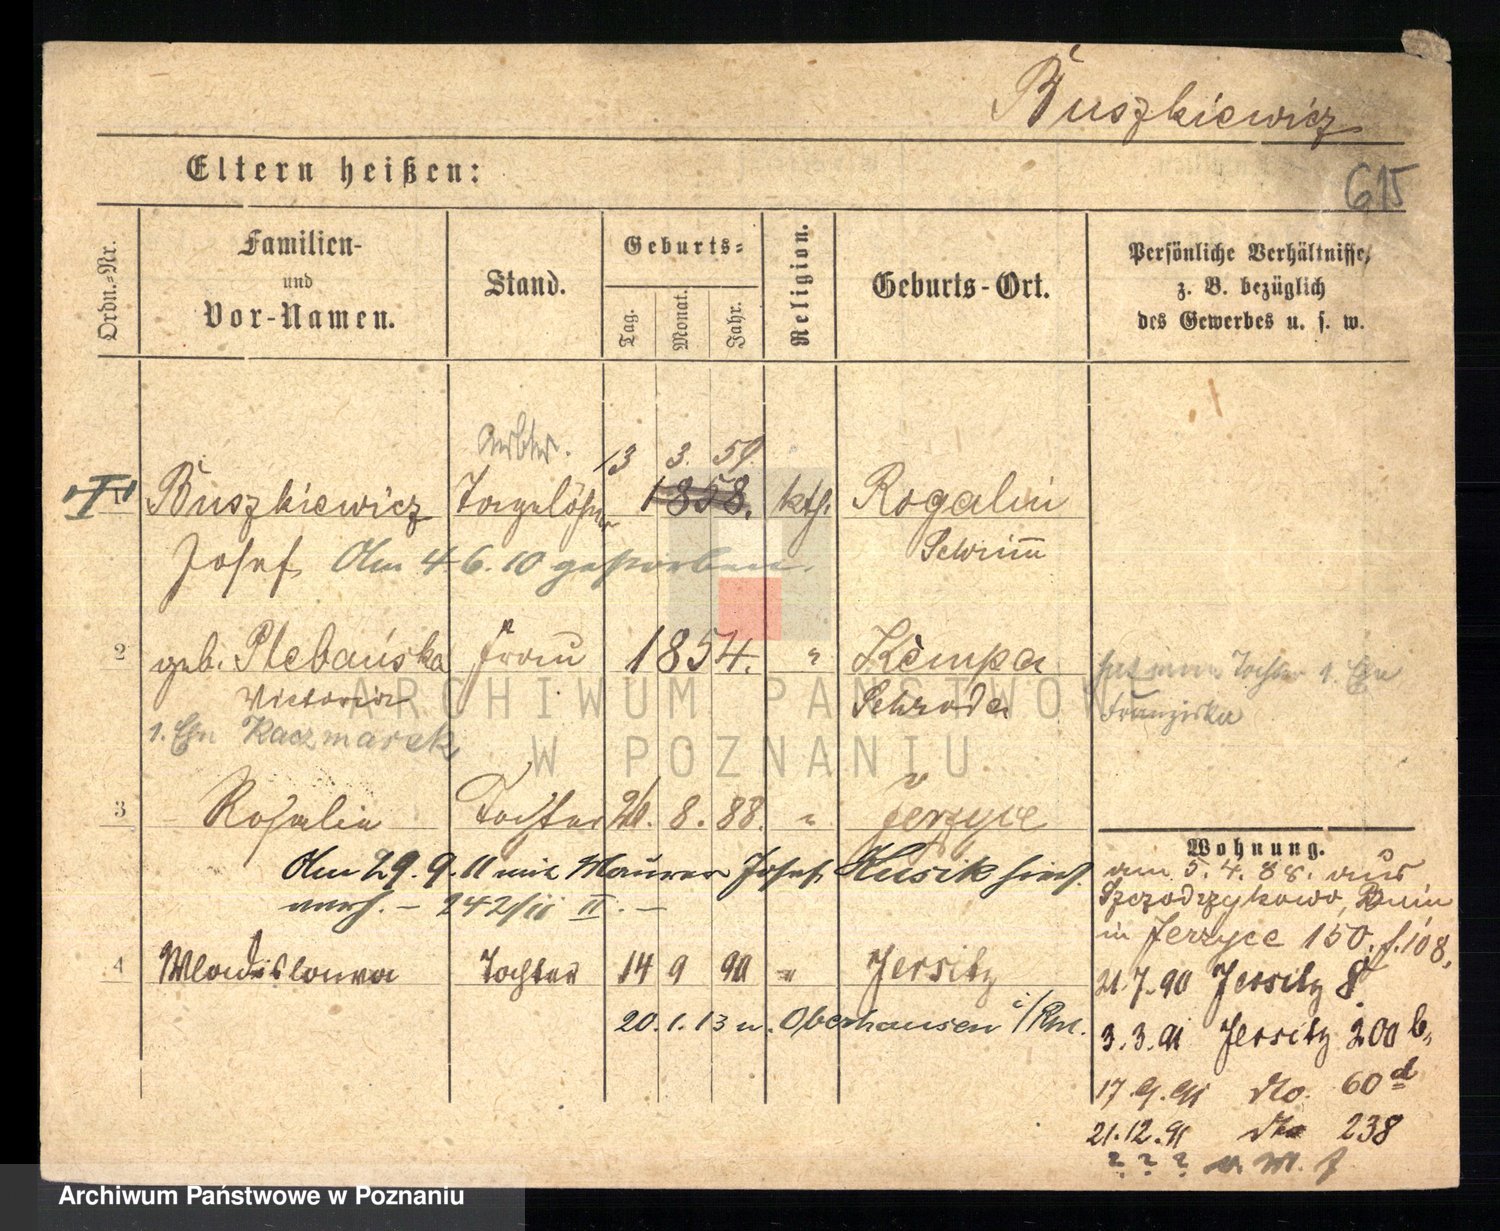 Buszkiewicz
Eltern heißen:
615
Ordn.-Nr.
Familien-
und
Vor-Namen.
Stand.
Geburts-
Tag.
Monat.
Jahr.
Religion.
Geburts-Ort.
Persönliche Verhältnisse,
z. B. bezüglich
des Gewerbes u. s. w.
Arbtr.
13 3. 59.
1 Buszkiewicz Tagelöhner 1858. kth. Rogalin
Josef Am 4.6.10 gestorben. Schrimm
2 geb. Plebańska Frau 1854. " Kempa
Victoria Schroda
hat eine Tochter 1. Ehe
Franziska
1. Ehe Kaczmarek
3 Rosalie Tochter 26. 8. 88. " Jerzyce
Am 29.9.11 mit Maurer Josef Kusik hies.
verh. – 242/11 II. –
4 Wladislawa Tochter 14 9 90 " Jersitz
20.1.13 n. Oberhausen i/Rhl.
Wohnung.
am 5.4.88. aus
Szczodrzykowo,
in Jerzyce 150. f. 108.
21.7.90 Jersitz 8
3.3.91 Jersitz 200 b.
17.9.91 do. 60 d
21.12.91 do 238
? ? ? u. M. f
ARCHIWUM PAŃSTWOWE
W POZNANIU
Archiwum Państwowe w Poznaniu